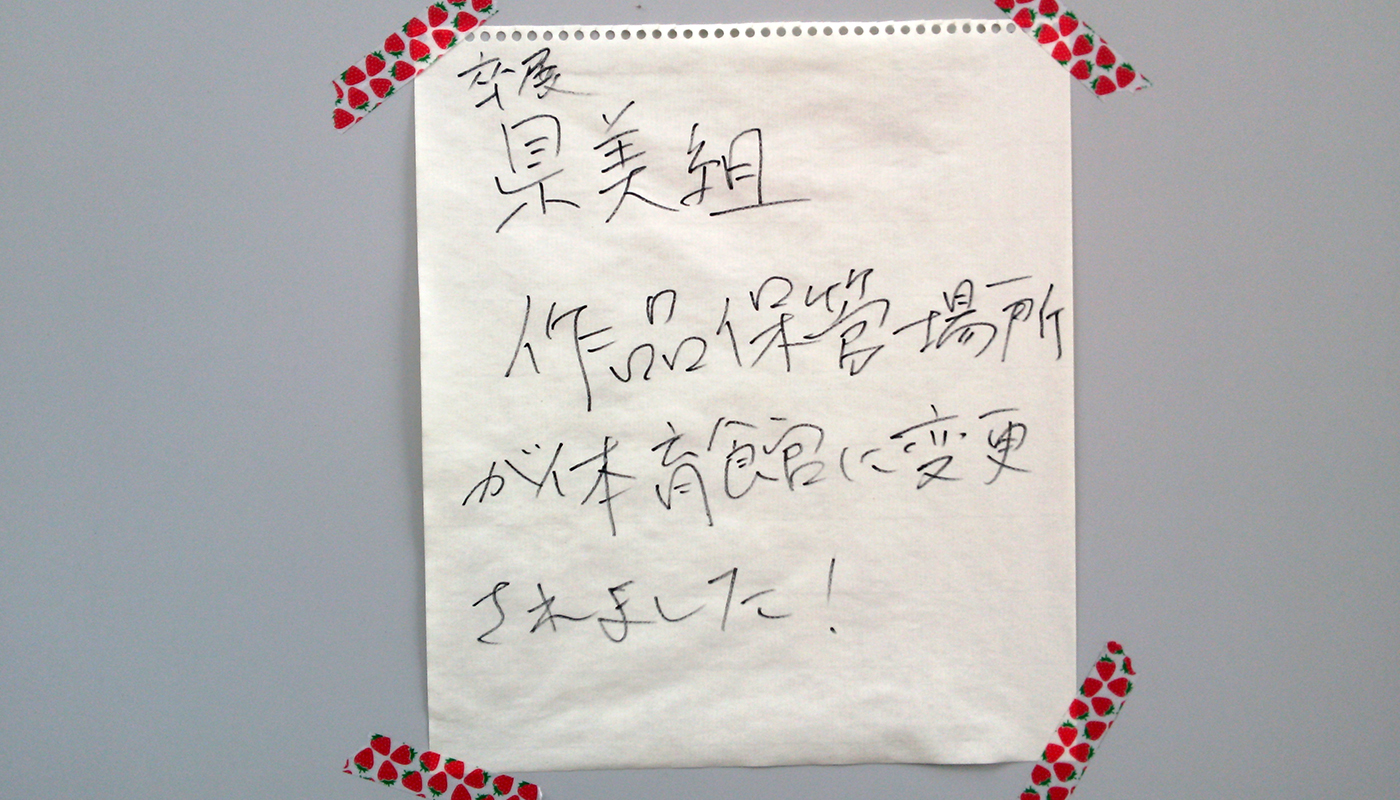 卒展
県美組
作品保管場所
が体育館に変更
されました!